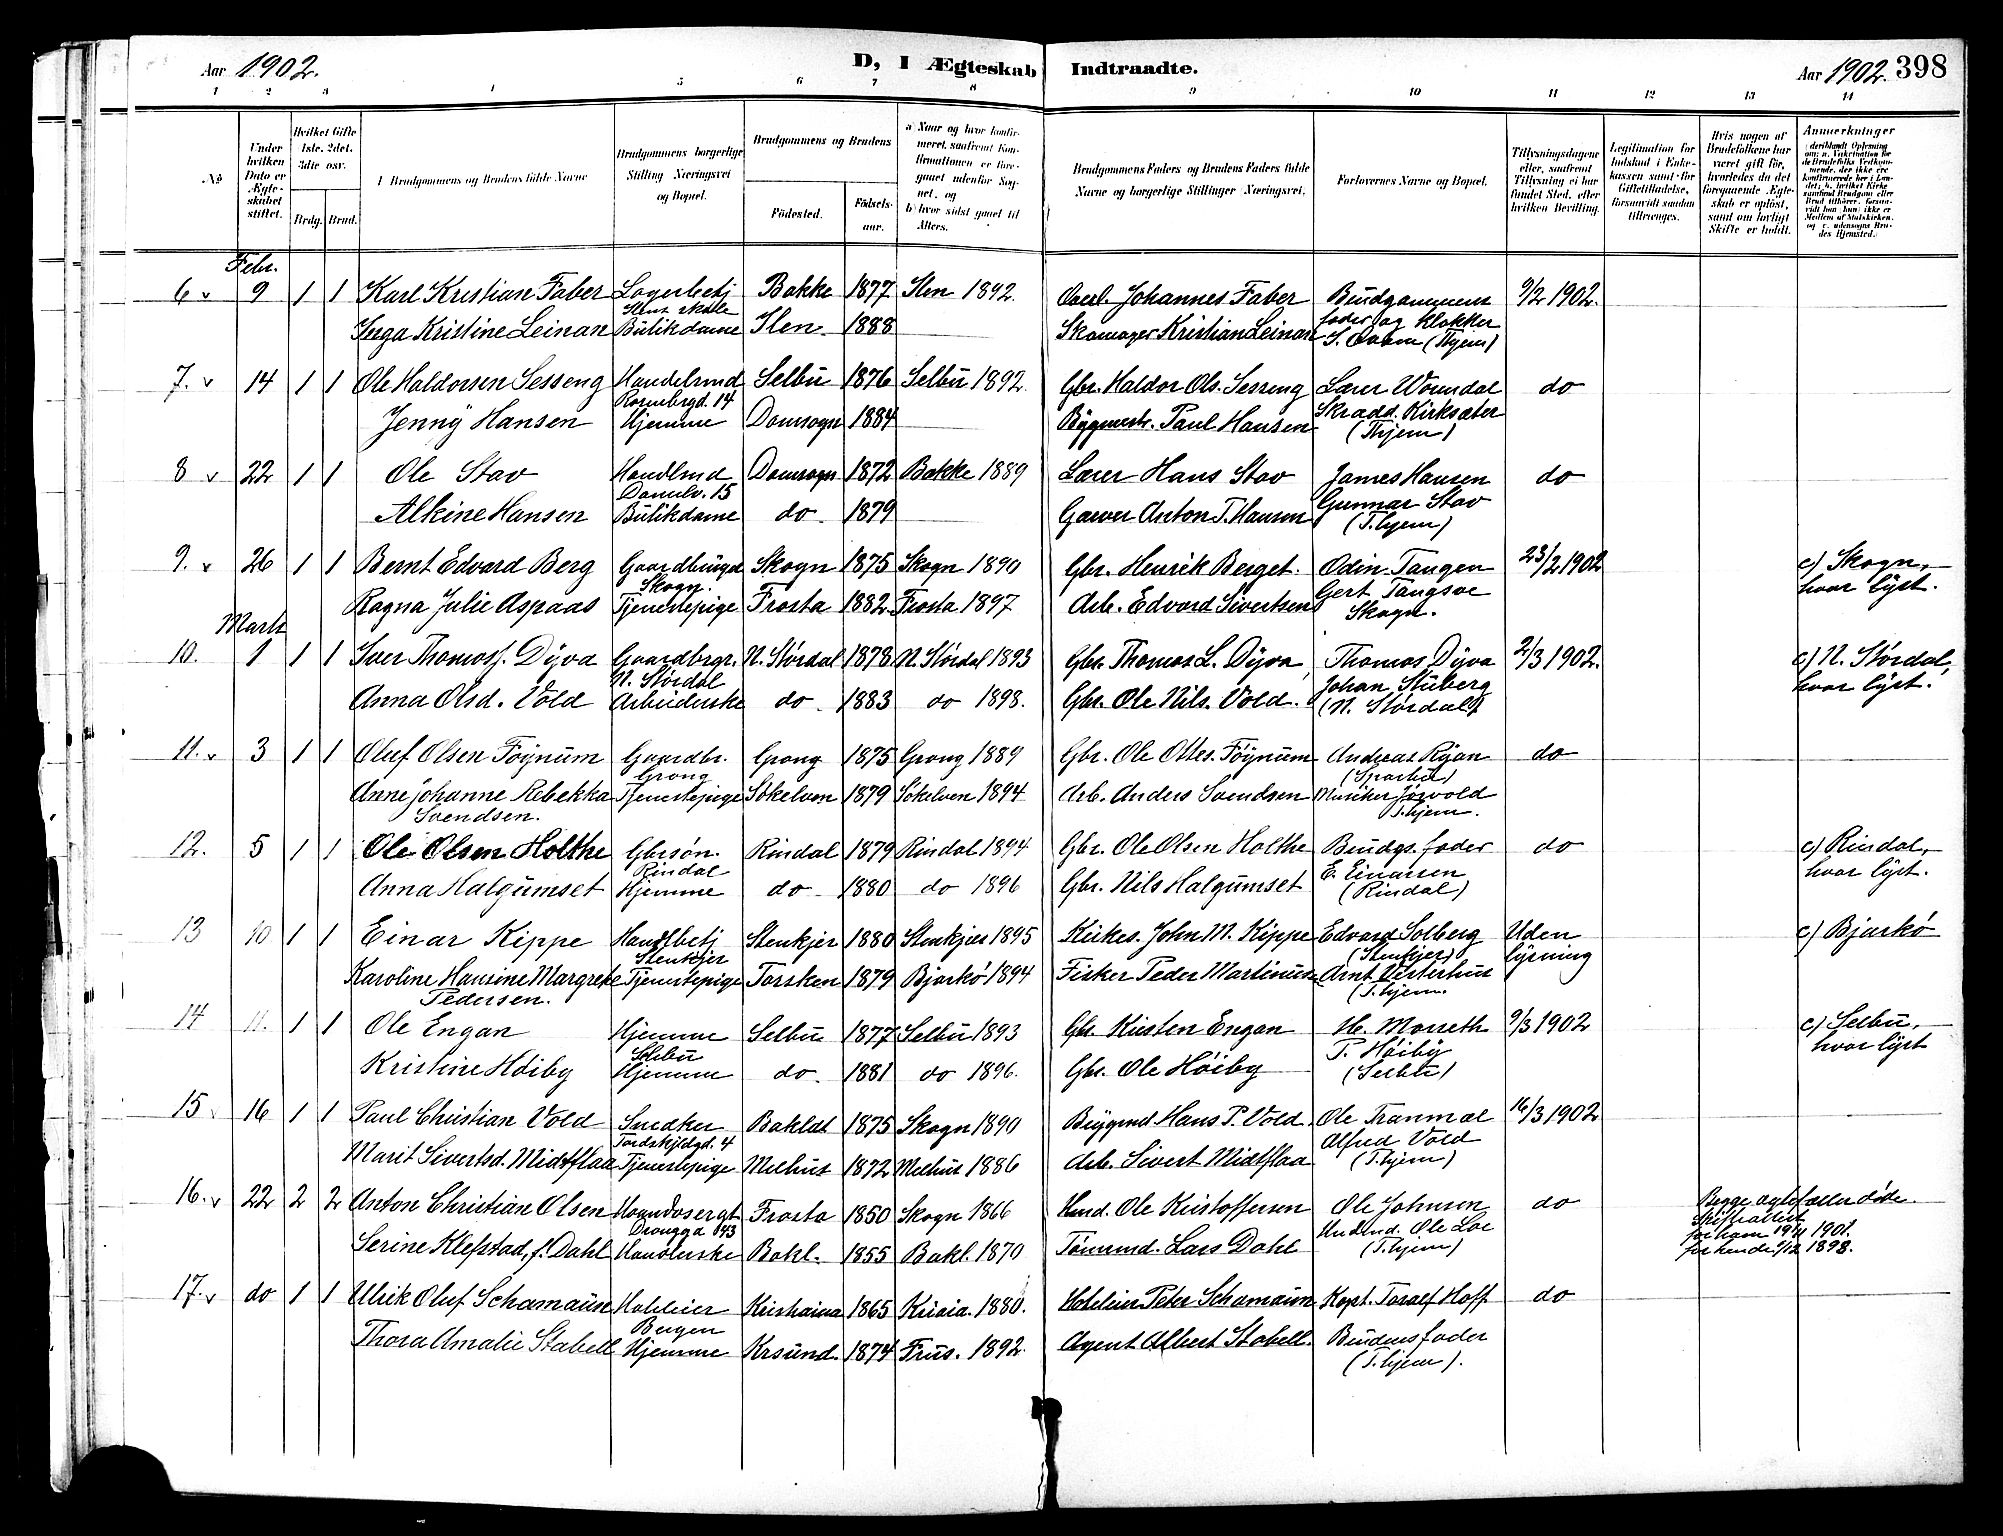 Aar 1902.
D, I Ægteskab Indtraadte.
Aar 1902. 398
1 2 3 4 5 6 7 8 9 10 11 12 13 14
No
Under hvilken Dato er Ægteskabet stiftet.
Hvilket Gifte 1ste. 2det. 3die osv.
Brdg. Brud.
Brudgommens og Brudens fulde Navne
Brudgommens borgerlige Stilling Næringsvei og Bopæl.
Brudgommens og Brudens
Fødested.
Fødselsaar.
a) Naar og hvor konfirmeret, saafremt Konfirmationen er foregaaet udenfor Sognet, og
b) hvor sidst gaaet til Alters.
Brudgommens Faders og Brudens Faders fulde Navne og borgerlige Stillinger (Næringsvei.
Forlovernes Navne og Bopæl.
Tillysningsdagene eller, saafremt Tillysning ei har fundet Sted, efter hvilken Bevilling.
Legitimation for Indskud i Enkekassen samt for Giftetilladelse, forsaavidt saadan tiltrænges.
Hvis nogen af Brudefolkene har været gift før, hvorledes da det foregaaende Ægteskab er opløst, samt om lovligt Skifte er holdt.
Anmerkninger
Febr.
6 v 9 1 1 Karl Kristian Faber Lagerbetj Bakke 1877 Ilen 1892. Johannes Faber Brudgommens 9/2 1902.
Inga Kristine Leinan Butikdame Ilen 1888 Skomager Kristian Leinan fader og Klokker
(Thjem)
7. v 14 1 1 Ole Haldorsen Sesseng Handelsmd Selbu 1876 Selbu 1892. Gbr. Haldor Ols. Sesseng Lærer do
Rosenbergd. 14
Jenny Hansen Hjemme Domsogn 1884 Bygmestr. Paul Hansen Skradd. Kirksæter
(Thjem)
8 v 22 1 1 Ole Stav Handlmd Domsogn 1872 Bakke 1889 Lærer Hans Stav James Hansen do
15
Alkine Hansen Butikdame do 1879 Garver Anton T. Hansen Gunnar Stav
(T.hjem)
9. v 26 1 1 Bernt Edvard Berg Skogn 1875 Skogn 1890 Gbr. Henrik Berget. Odin Tangen 23/2 1902 c) Skogn,
Skogn. hvor lyst.
Ragna Julie Aspaas Tjenestepige Frosta 1882 Frosta 1897 Arb. Edvard Sivertsen Gert
Skogn.
Marts
10. 1 1 1 Iver Thomasf. Dyva Gaardbrgr. N. Stördal 1878 N. Stördal 1893 Gbr. Thomas L. Dyva Thomas Dyva 2/3 1902. c) N. Stördal,
N. Stördal hvor lyst.
Anna Olsd. Vold Arbeiderske do 1883 do 1898. Gbr. Ole Nils. Vold. Johan Stuberg
(N. Stördal)
11. v 3 1 1 Oluf Olsen Föynum Gaardbr. Grong 1875 Grong 1889 Gbr. Ole Ottes. Föynum Andreas Ryan do
Grong (Sparbu)
Anne Johanne Rebekka Tjenestepige Sökelven 1879 Sökelven 1894 Arb. Anders Svendsen Musiker
Svendsen. T.hjem.
12. 5 1 1 Ole Olsen Holthe Gbrsön. Rindal 1879 Rindal 1894 Gbr. Ole Olsen Holthe Brudgs. fader do c) Rindal,
Rindal hvor lyst.
Anna Halgumset Hjemme do 1880 do 1896 Gbr. Nils Halgumset E. Einarsen
(Rindal)
13 10 1 1 Einar Kippe Handlbetj Stenkjer 1880 Stenkjer 1895 Kirkes. John M. Kippe Edvard Solberg Uden c) Bjarkö
Stenkjer (Stenkjer) lysning
Karoline Hansine Margrete Tjenestepige Torsken 1879 Bjarkö 1894 Fisker Peder Martinus Arnt Vesterhus
Pedersen. (T.hjem.
14 11. 1 1 Ole Engan Hjemme Selbu 1877 Selbu 1893 Gbr. Kirsten Engan H. Morseth 9/3 1902 c) Selbu,
Selbu hvor lyst
Kristine Höiby Hjemme do. 1881 do 1896. Gbr. Ole Höiby P. Höiby
(Selbu)
15 v 16 1 1 Paul Christian Vold Snedker Bakldt 1875 Skogn 1890 Bygmd Hans P. Vold Ole Tranmæl 16/3 1902
Tordskjoldgd. 4
Marit Sivertsd. Midtflaa Tjenestepige Melhus 1872 Melhus 1886 Arb. Sivert Midtflaa Alfred Vold
(T.hjem)
16. v 22 2 2 Anton Christian Olsen Frosta 1850 Skogn 1866 Hmd. Ole Kristoffersen Ole Johnsen do Begge ægtefæller døde.
43 Skifteattest
Serine Klefstad, f. Dahl Handlerske Bakl. 1855 Bakl. 1870 Tömmd. Lars Dahl Ole Loe for ham 19/11 1901.
(T.hjem) for hende 1/12 1898.
17. v do 1 1 Ulrik Oluf Schamaun Hotelier Kristiania 1865 Kr.ia. 1880. Hoteleier Peter Schamaun Kapt. Toralf Hoff do
Bergen
Thora Amalie Stabell Hjemme Krsund. 1874 Frus. 1892. Agent Albert Stabell. Brudens fader
(T.hjem).